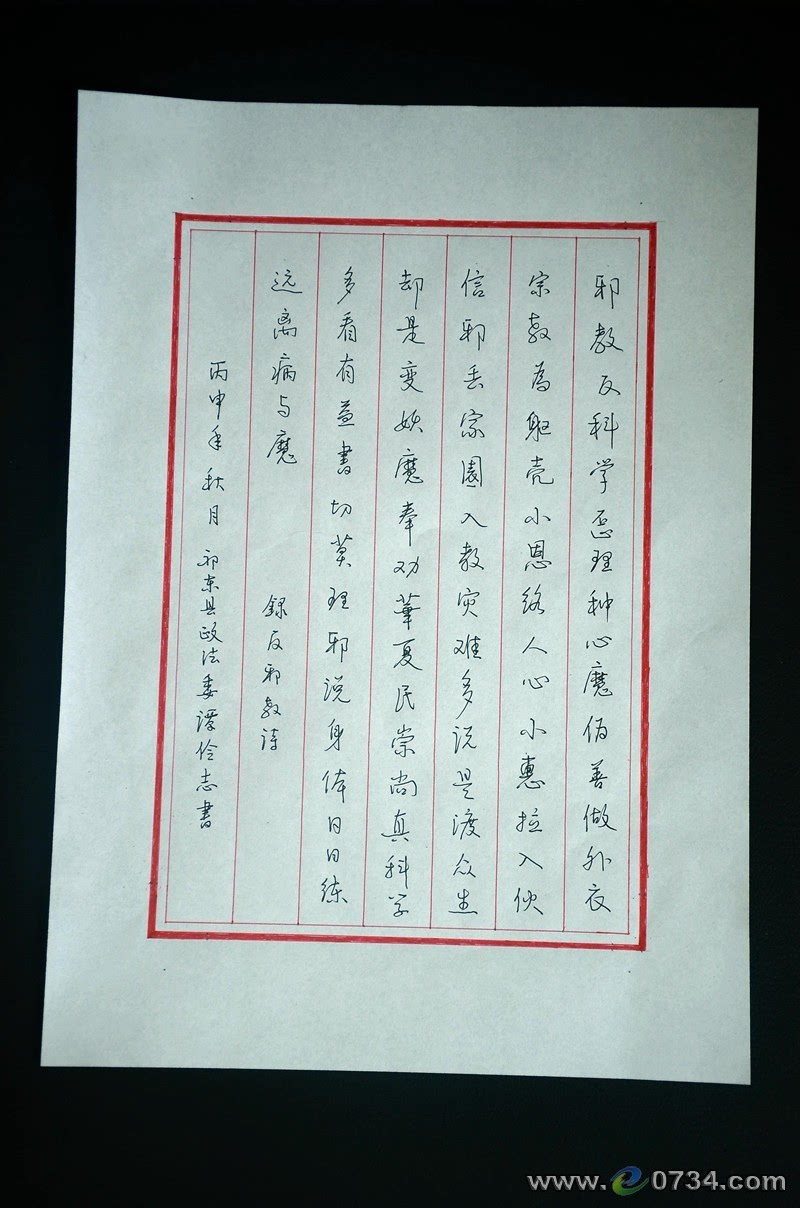 邪教反科学歪理种心魔佰善做外衣
宗教為躯壳小恩络人心小惠拉入伙
信邪丢家園入教灾难多说是渡众生
却是变妖魔奉劝華夏民崇尚真科学
多看有益書切莫理邪说身体日日练
远离病与魔 録反邪教诗
丙申年秋月 祁东县政法委谭伶志書
www.e0734.com